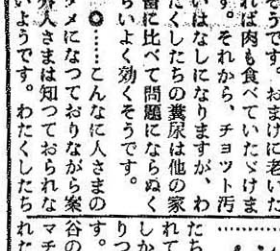 うです。おまけに老いた
れば肉も食べていたゞけま
す。それから、チョット汚
いはなしになりますが、わ
たくしたちの糞尿は他の家
畜に比べて問題にならぬく
らいよく効くそうです。
◎……こんなに人さまの
タメになつておりながら案
外人さまは知つておられな
いようです。わたくしたち
たち
れて
しか
りつ
す。
谷の
マチ
れた